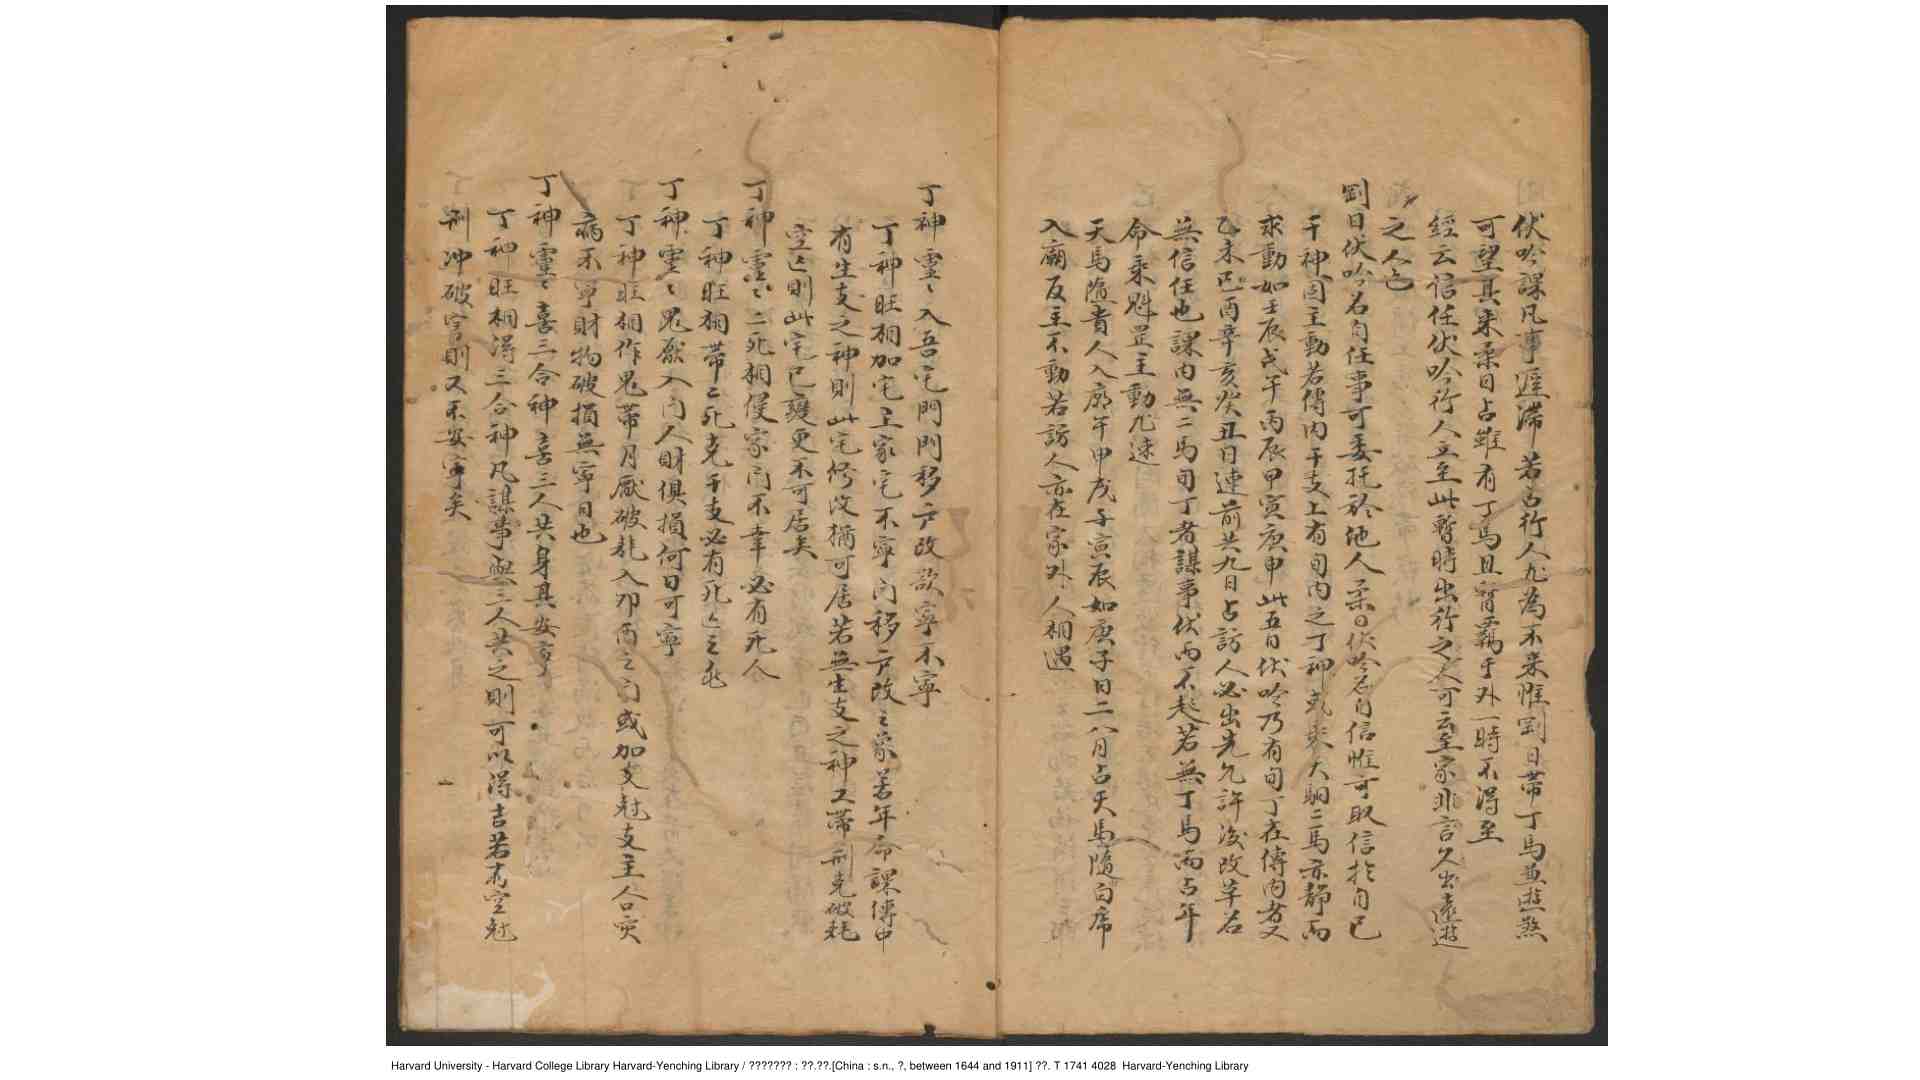 伏吟課凡事涯滯若占行人尤為不来惟剛日帶丁馬並遊煞
可望其来柔日占雖有丁馬且暫羈于外一時不得至
經云信任伏吟行人立至此暫時出行之人可云至家非言久出遠遊
之人也
剛日伏吟名自任事可委托於他人柔日伏吟名自信惟可取信於自己
干神固主動若傳内干支上有旬内之丁神或乘天駟二馬亦静而
求動如壬辰戊午丙辰甲寅庚申此五日伏吟乃有旬丁在傳内者又
乙未己酉辛亥癸丑日連前共九日占訪人必出先允許後改革若
無信任也課内無二馬旬丁者謀事伏而不起若無丁馬而占年
命乘魁罡主動尤速
天馬隨貴人入廟午申戌子寅辰如庚子日二八月占天馬隨白席
入廟反主不動若訪人亦在家外人相遇
丁神靈々入吾宅門門移户改欲寧不寧
丁神旺相加宅主家宅不寧门移户改之象若年命課傳中
有生支之神則此宅修改猶可居若無生支之神又帶刑克破耗
空亡則此宅已變更不可居矣
丁神靈々二死相侵家门不幸必有死人
丁神旺相帶二死克干支必有死亡之兆
丁神靈々鬼厭入门人財俱損何日可寧
丁神旺相作鬼帶月厭破耗入卯酉之门或加支尅支主人口灾
病不寧財物破損無寧日也
丁神靈々喜三合神喜三人共身其安寧
丁神旺相得三合神凡謀事與三人共之則可以得吉若有空尅
刑冲破害則又不安寧矣
Harvard University - Harvard College Library Harvard-Yenching Library / ??????? : ??.??.[China : s.n., ?, between 1644 and 1911] ??. T 1741 4028  Harvard-Yenching Library